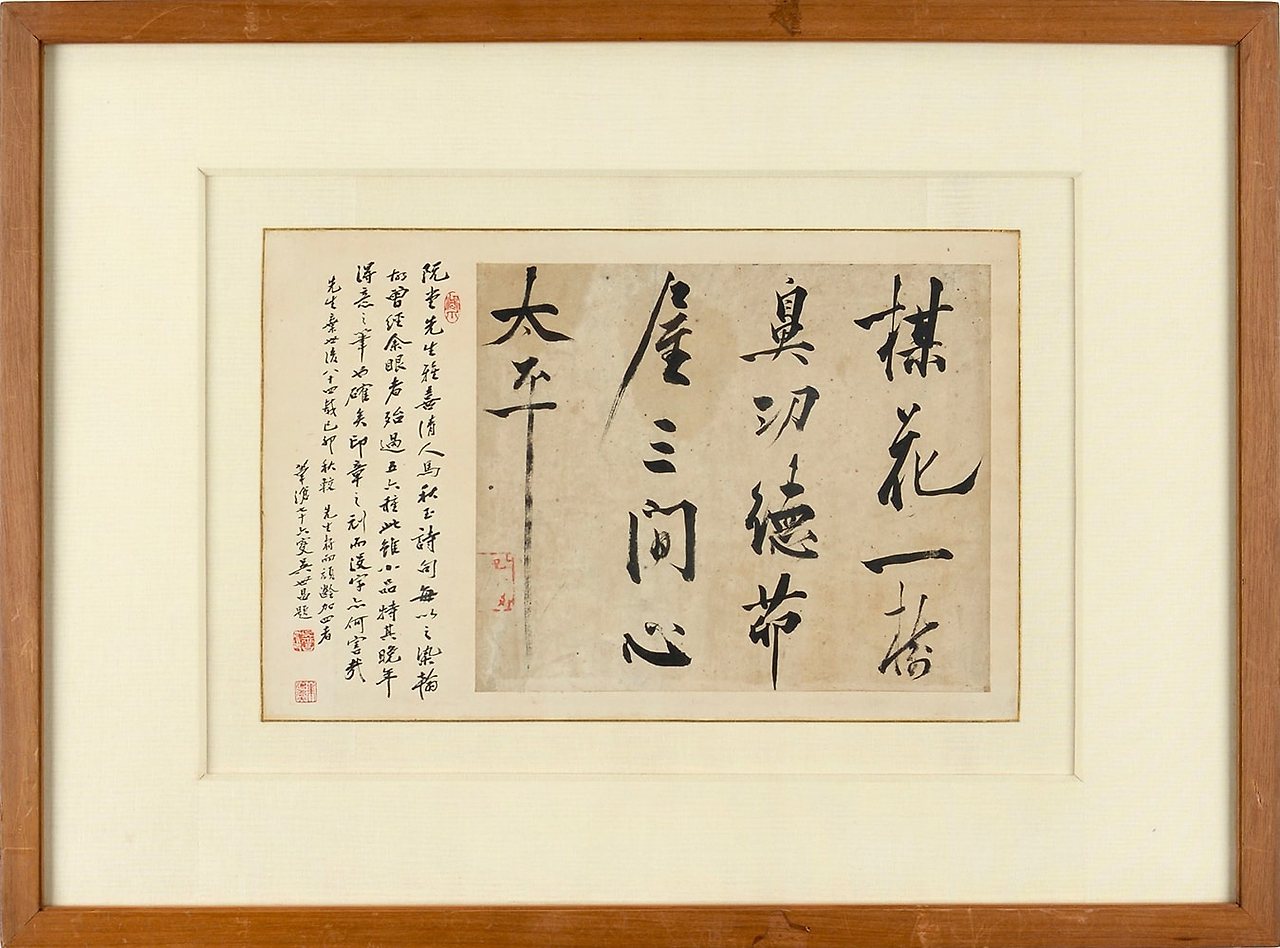 楳花一榻
鼻功德茆
屋三間心
太平
阮堂先生雅喜清人馬秋玉詩句每以之染翰
故曾經余眼者殆過五六種此雖小品特其晚年
得意之筆也確矣印章之刓而沒字亦何害哉
先生棄世後八十四載己卯秋較先生壽而頑齡加四者
葦滄七十六叟吳世昌題